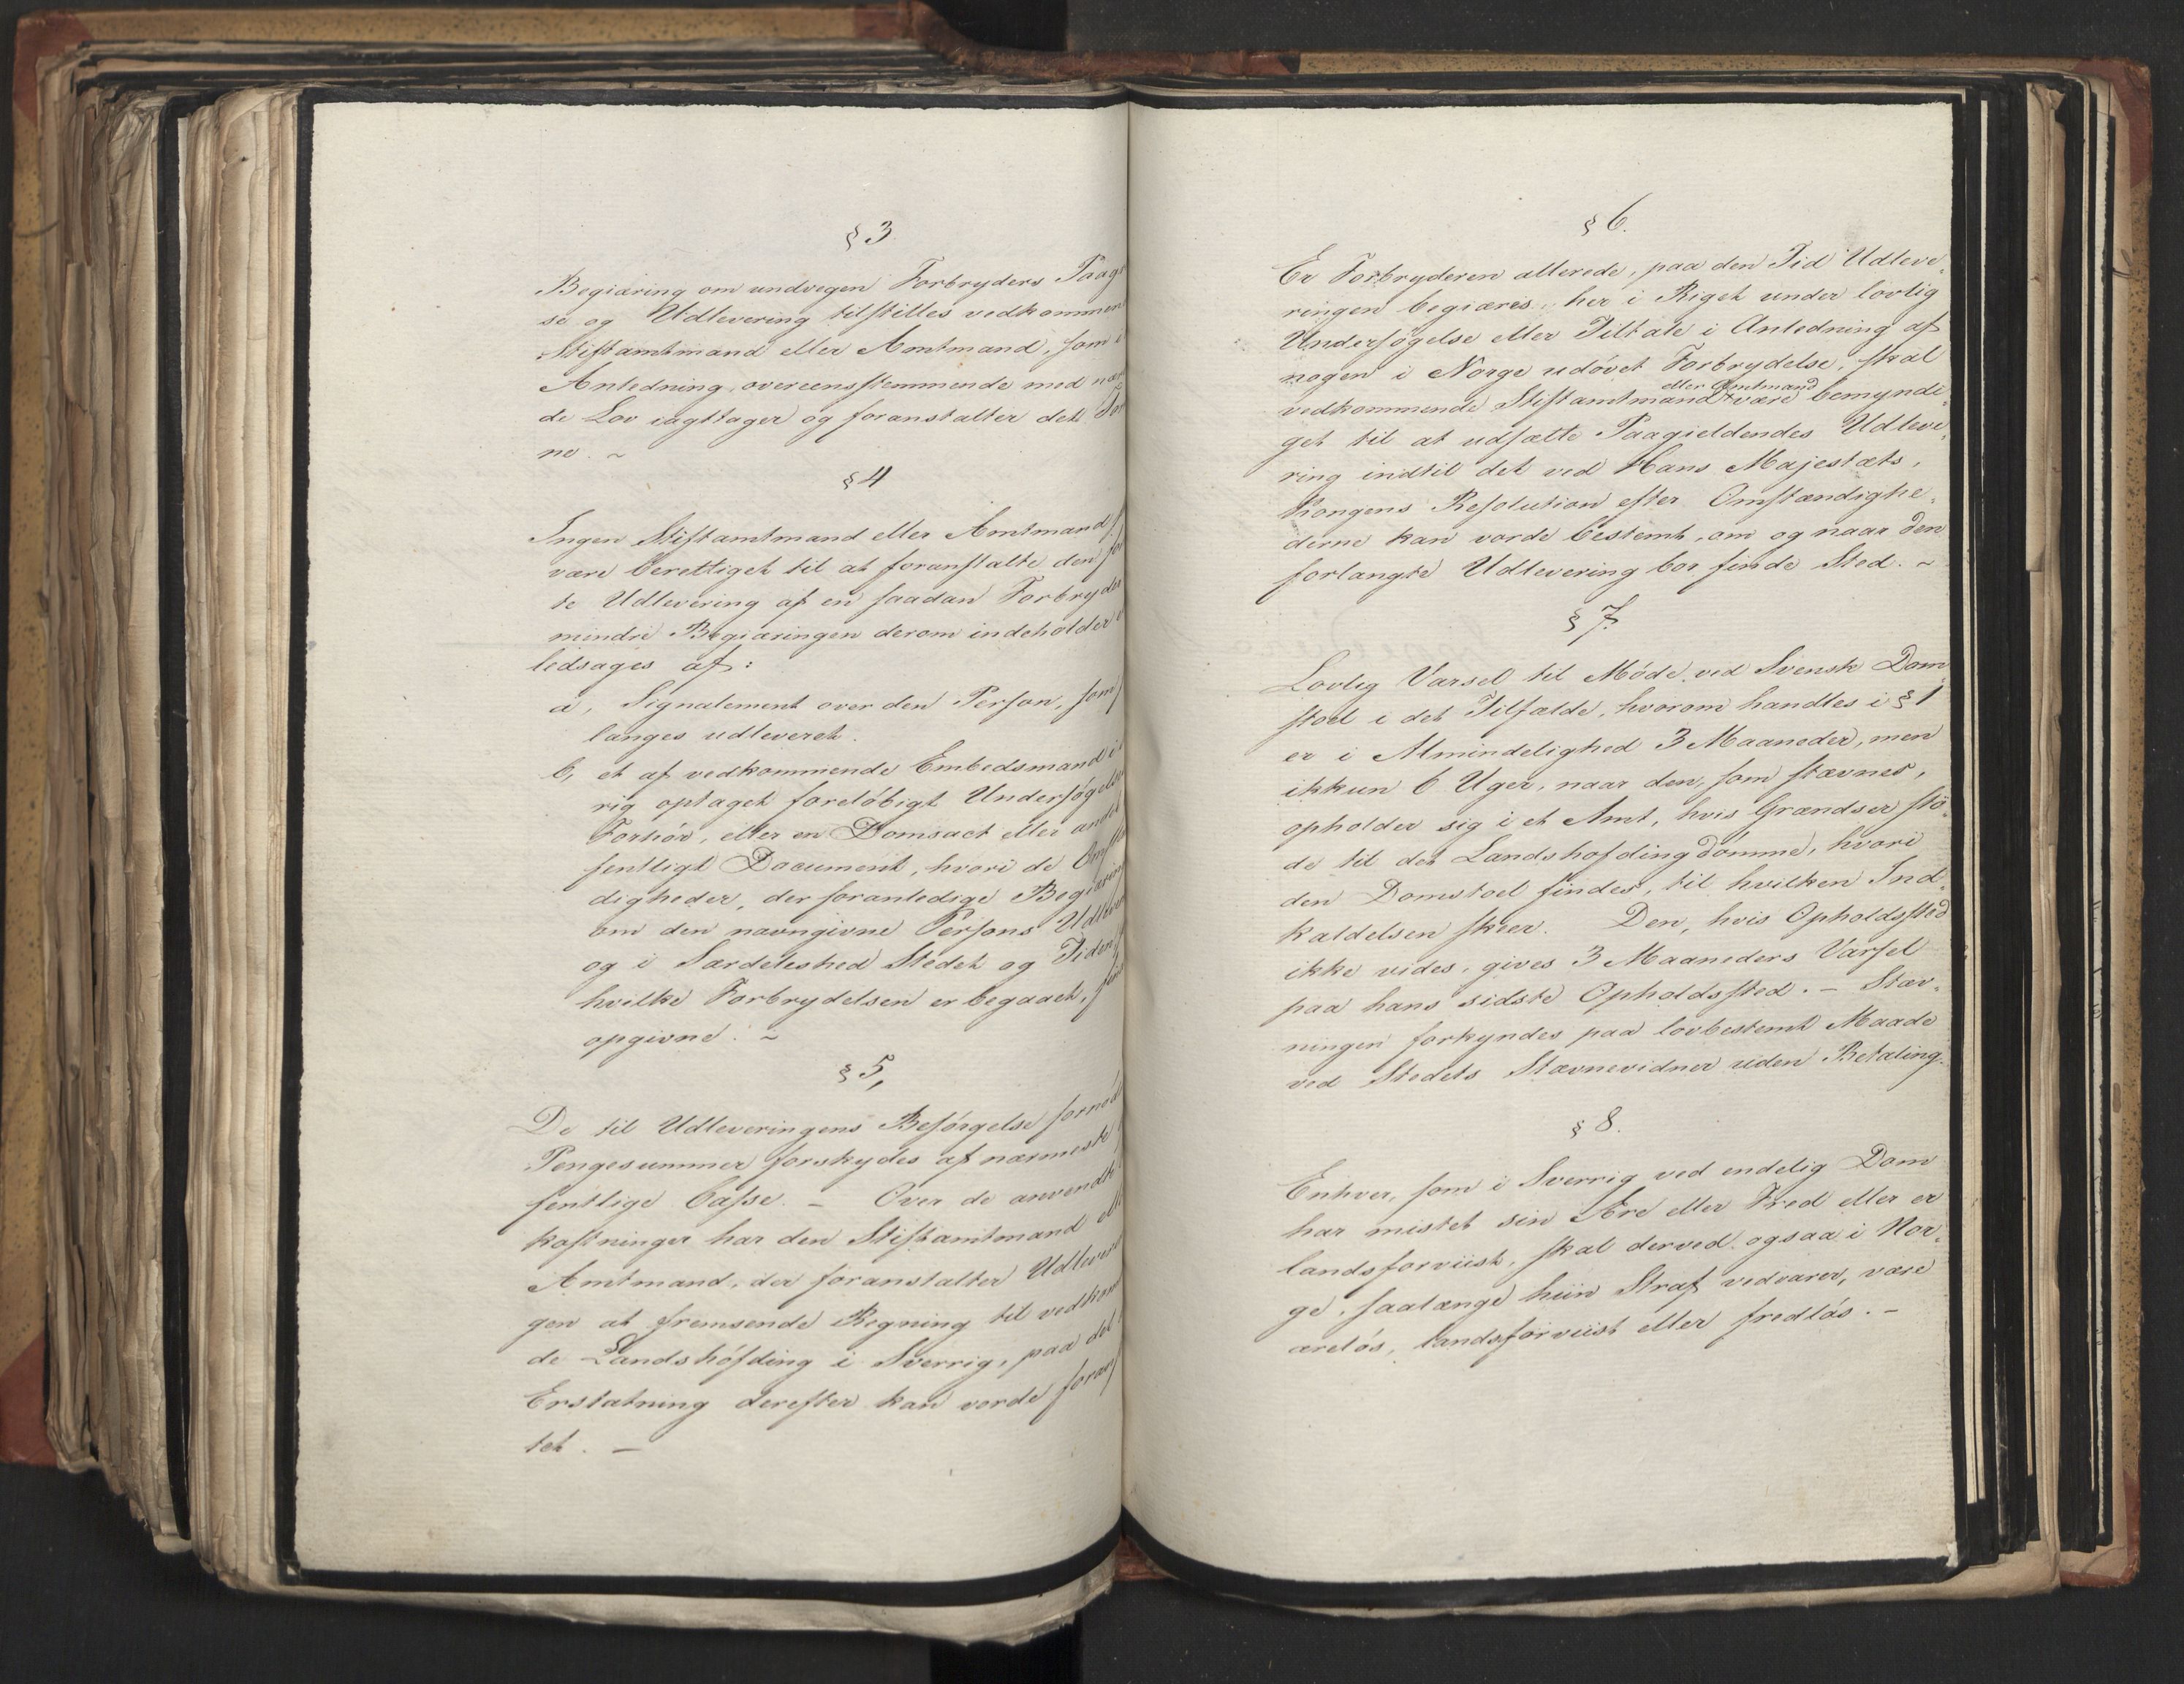 § 3
Begiæring om undvegen Forbryders Paag
se og Udlevering tilstilles vedkommen
Stiftamtmand eller Amtmand, som i
Anledning, overeensstemmende med næ
de Lov iagttager og foranstalter det For
ne. ~
§ 4
Ingen Stiftamtmand eller Amtmand
være berettiget til at foranstalte den
te Udlevering af en saadan Forbryde
mindre Begiæringen derom indeholder e
ledsages af:
a, Signalement over den Person, som
langes udleveret.
b, et af vedkommende Embedsmand i
rig optaget foreløbigt Undersøgelse
Forhør, eller en Domsact eller andet
fentligt Document, hvori de Omst
digheder, der foranledige Begiæring
om den navngivne Persons Udleve
og i Særdeleshed Stedet og Tiden
hvilke Forbrydelsen er begaaet,
opgivne. ~
§ 5,
De til Udleveringens Besørgelse fornød
Pengesummer forskydes af nærmeste
fentlige Casse. – Over de anvendte
kostninger har den Stiftamtmand elle
Amtmand, der foranstalter Udleveri
gen at fremsende Regning til vedkom
de Landshøfding i Sverrig, paa det
Erstatning derefter kan vorde foran
tet. —
§ 6.
Er Forbryderen allerede, paa den Tid Udleve,
ringen begiæres, her i Riget under lovlig
Undersøgelse eller Tiltale i Anledning af
nogen i Norge udøvet Forbrydelse, skal
eller Amtmand
vedkommende Stiftamtmand være bemyndi,
get til at udsætte Paagieldendes Udleve,
ring indtil det ved Hans Majestæts,
Kongens Resolution efter Omstændighe,
derne kan vorde bestemt, om og naar den
forlangte Udlevering bør finde Sted. ~
§ 7.
Lovlig Varsel til Møde ved Svensk Dom,
stoel i det Tilfælde, hvorom handles i § 1
er i Almindelighed 3 Maaneder, men
ikkun 6 Uger, naar den, som stævnes,
opholder sig i et Amt, hvis Grændser stø,
de til det Landshofdingdømme, hvori
den Domstoel findes, til hvilken Ind,
kaldelsen skeer. Den, hvis Opholdssted
ikke vides, gives 3 Maaneders Varsel
paa hans sidste Opholdssted. – Stæv,
ningen forkyndes paa lovbestemt Maade
ved Stedets Stævnevidner uden Betaling.
§ 8.
Enhver, som i Sverrig ved endelig Dom
har mistet sin Ære eller Fred eller er
landsforviist, skal derved ogsaa i Nor,
ge, saalænge hiin Straf vedvarer, være
æreløs, landsforviist eller fredløs. –